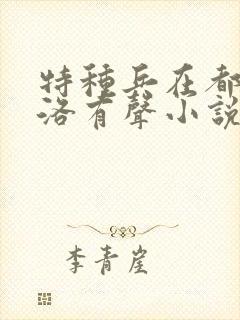 特種兵在都
洛有聲小說
李青崖